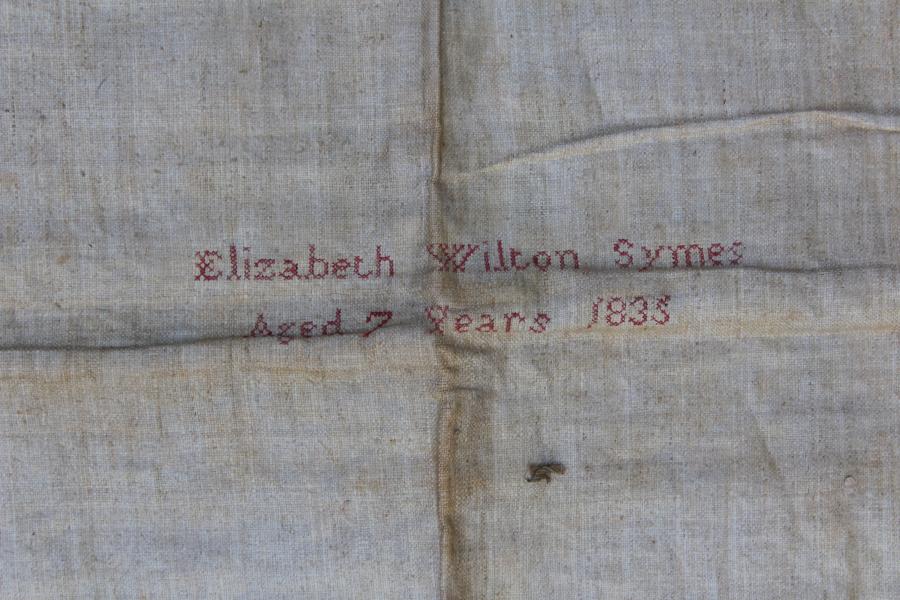 Elizabeth Wilton Symes
Aged 7 Years 1835